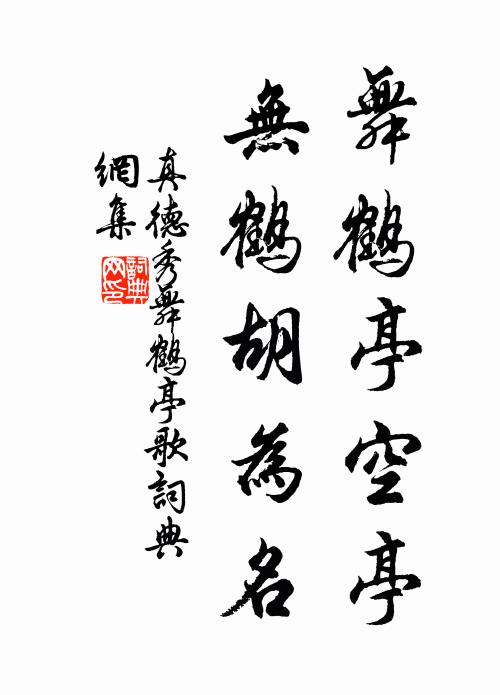 舞鶴亭空亭
無鶴胡為名
真德秀舞鶴亭歌詞典
網集
詞典
网印